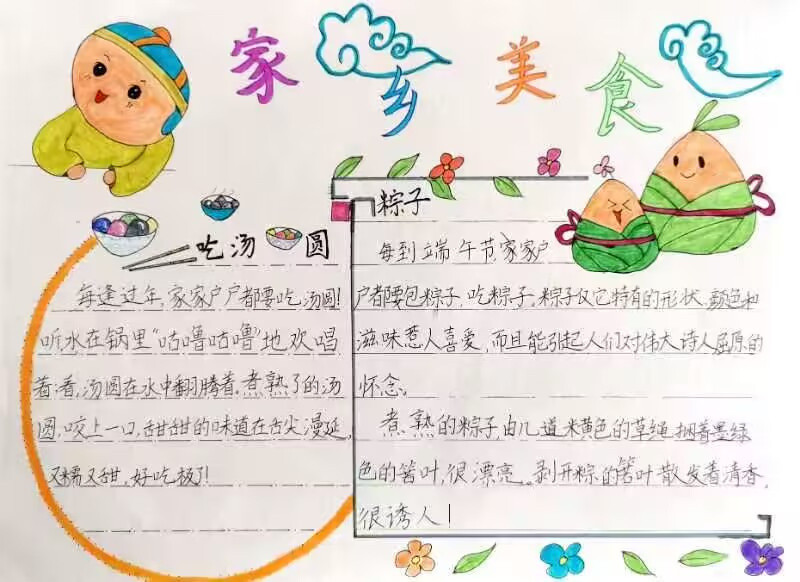 家乡美食
吃汤圆
每逢过年,家家户户都要吃汤圆!
听水在锅里“咕噜咕噜”地欢唱
着,看,汤圆在水中翻腾着。煮熟了的汤
圆,咬上一口,甜甜的味道在舌尖漫延,
又糯又甜,好吃极了!
粽子
每到端午节家家户
户都要包粽子,吃粽子。粽子仅它特有的形状、颜色和
滋味惹人喜爱,而且能引起人们对伟大诗人屈原的
怀念。
煮熟的粽子,由几道米黄色的草绳捆着墨绿
色的箬叶,很漂亮。剥开粽的箬叶散发着清香,
很诱人!